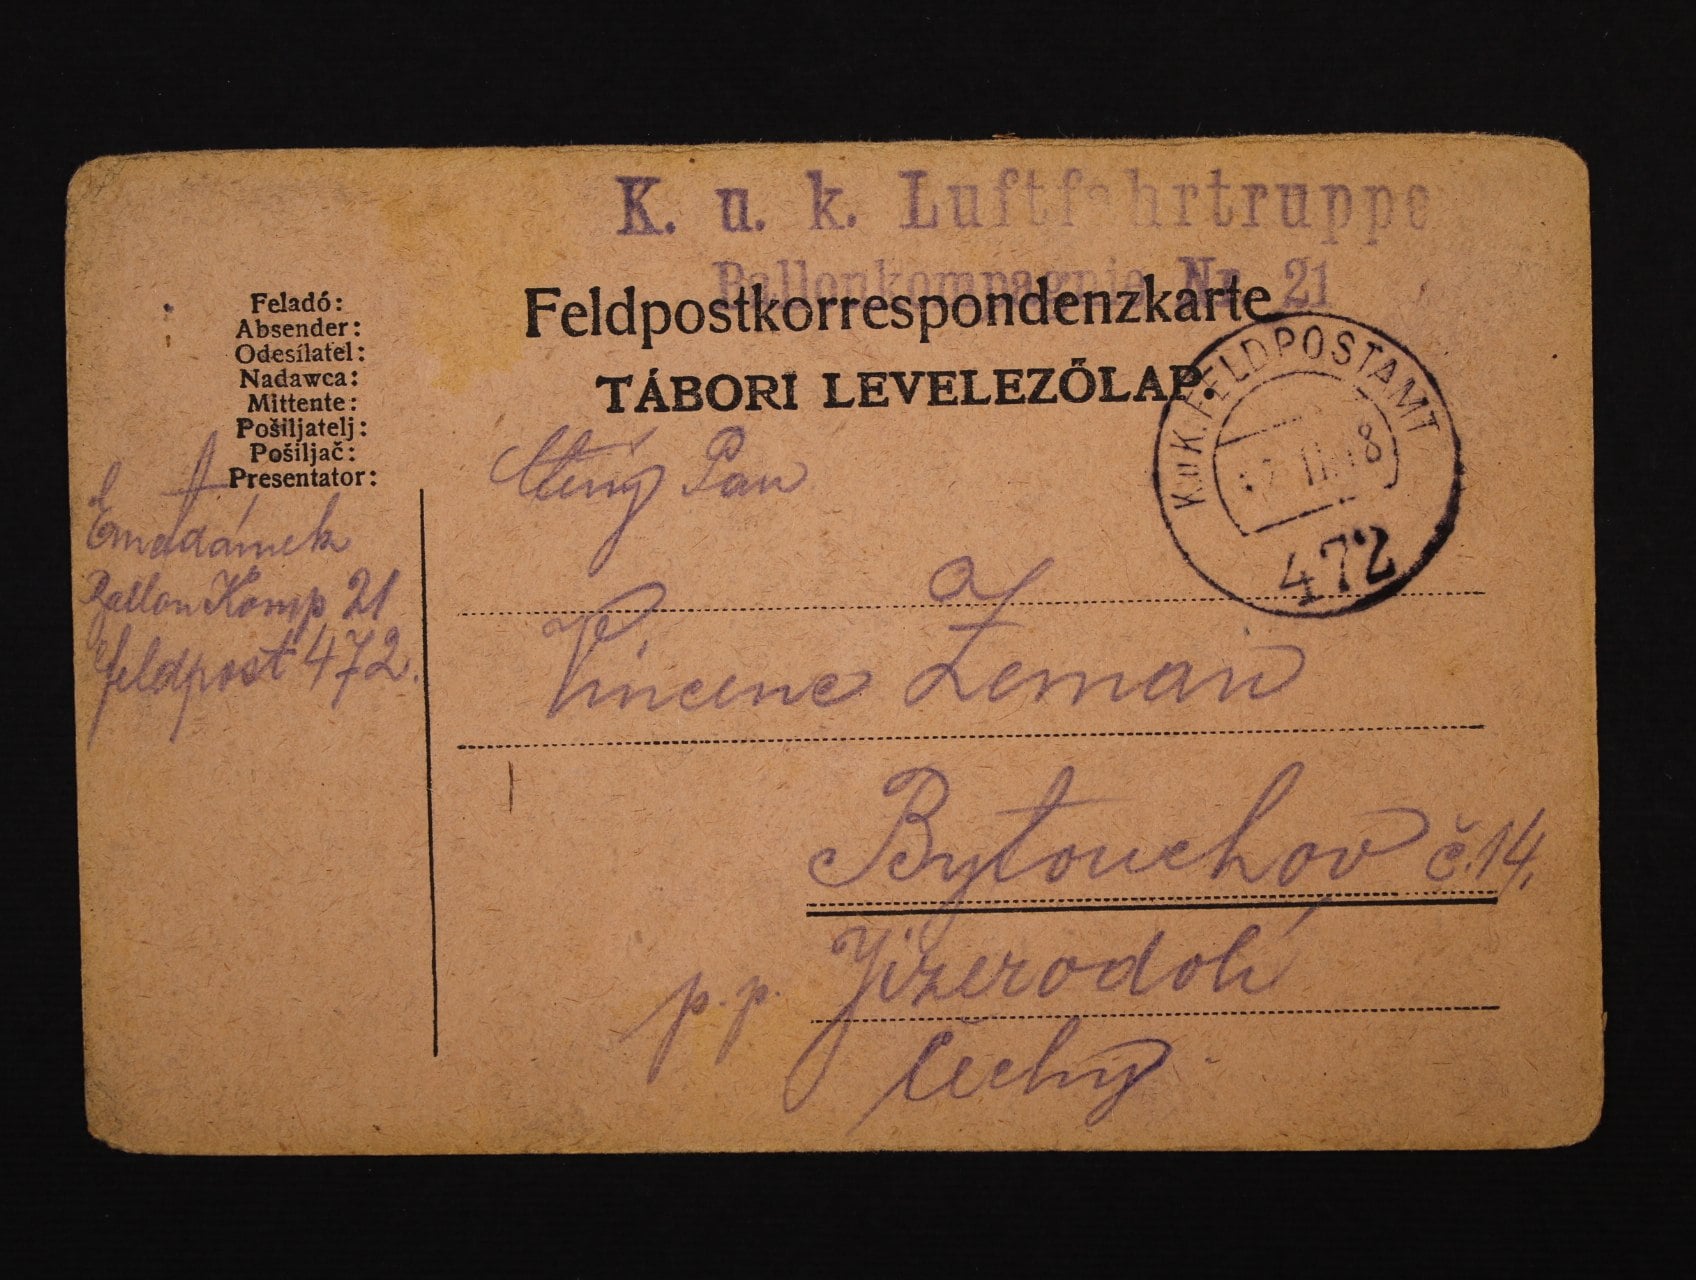 K. u. k. Luftfahrtruppe
Ballonkompagnie Nr. 21
Feldpostkorrespondenzkarte
TÁBORI LEVELEZŐLAP.
K.u.K. FELDPOSTAMT
472
Feladó:
Absender:
Odesílatel:
Nadawca:
Mittente:
Pošiljatelj:
Pošiljač:
Presentator:
Ballon Komp 21
feldpost 472.
Ctěný Pan
Vincenc Zeman
Bytouchov č. 14,
p. p. Jizerodolí
Čechy